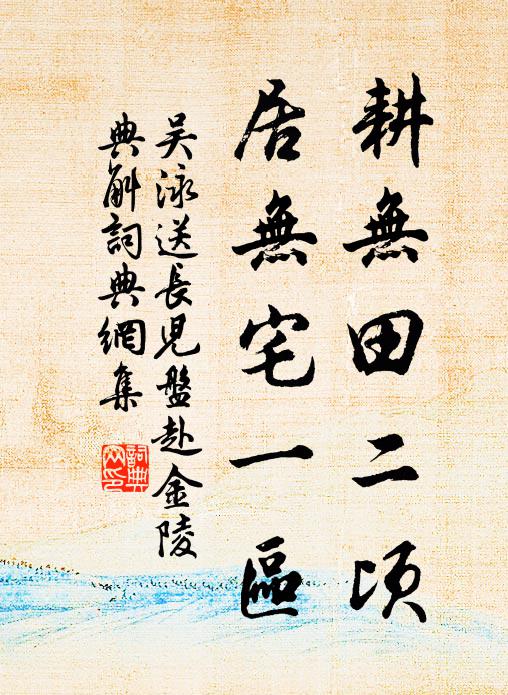 耕無田二頃
居無宅一區
吴泳送長兒盤赴金陵
典解詞典網集
詞典
网印